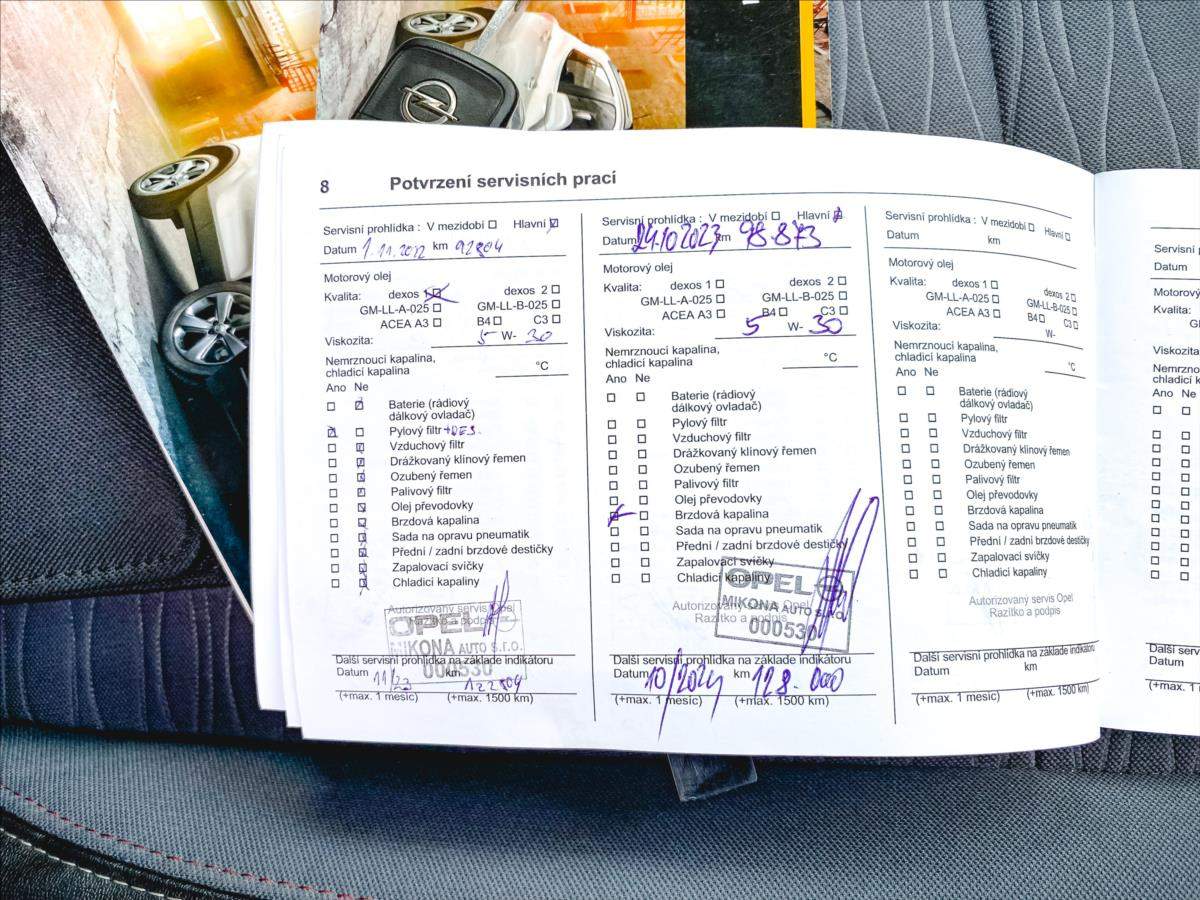 8 Potvrzení servisních prací
Servisní prohlídka : V mezidobí Hlavní
Datum 1.11.2022 km 92804
Motorový olej
Kvalita: dexos 1 dexos 2
GM-LL-A-025 GM-LL-B-025
ACEA A3 B4 C3
Viskozita: 5 W- 30
Nemrznoucí kapalina,
chladicí kapalina °C
Ano Ne
Baterie (rádiový
dálkový ovladač)
Pylový filtr +DES.
Vzduchový filtr
Drážkovaný klínový řemen
Ozubený řemen
Palivový filtr
Olej převodovky
Brzdová kapalina
Sada na opravu pneumatik
Přední / zadní brzdové destičky
Zapalovací svíčky
Chladicí kapaliny
Autorizovaný servis Opel
Razítko a podpis
OPEL
MIKONA AUTO s.r.o.
000530
Další servisní prohlídka na základe indikátoru
Datum 11/23 km 122804
(+max. 1 mesíc) (+max. 1500 km)
Servisní prohlídka : V mezidobí Hlavní
Datum 24.10.2023 km 98.873
Motorový olej
Kvalita: dexos 1 dexos 2
GM-LL-A-025 GM-LL-B-025
ACEA A3 B4 C3
Viskozita: 5 W- 30
Nemrznoucí kapalina,
chladicí kapalina °C
Ano Ne
Baterie (rádiový
dálkový ovladač)
Pylový filtr
Vzduchový filtr
Drážkovaný klínový řemen
Ozubený řemen
Palivový filtr
Olej převodovky
Brzdová kapalina
Sada na opravu pneumatik
Přední / zadní brzdové destičky
Zapalovací svíčky
Chladicí kapaliny
Autorizovaný servis Opel
Razítko a podpis
OPEL
MIKONA AUTO s.r.o.
000530
Další servisní prohlídka na základe indikátoru
Datum 10/2024 km 128.000
(+max. 1 mesíc) (+max. 1500 km)
Servisní prohlídka : V mezidobí Hlavní
Datum km
Motorový olej
Kvalita: dexos 1 dexos 2
GM-LL-A-025 GM-LL-B-025
ACEA A3 B4 C3
Viskozita: W-
Nemrznoucí kapalina,
chladicí kapalina °C
Ano Ne
Baterie (rádiový
dálkový ovladač)
Pylový filtr
Vzduchový filtr
Drážkovaný klínový řemen
Ozubený řemen
Palivový filtr
Olej převodovky
Brzdová kapalina
Sada na opravu pneumatik
Přední / zadní brzdové destičky
Zapalovací svíčky
Chladicí kapaliny
Autorizovaný servis Opel
Razítko a podpis
Další servisní prohlídka na základe indikátoru
Datum km
(+max. 1 mesíc) (+max. 1500 km)
Servisní
Datum
Motorový
Kvalita:
Viskozita
Ano Ne
Datum